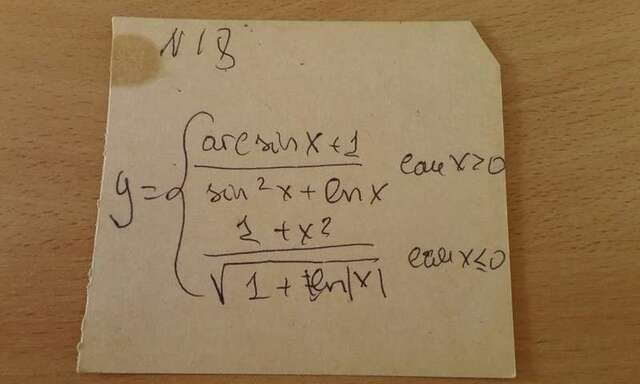 N 18
y = { (arcsin x + 1) / (sin²x + ln x) если x > 0
(1 + x²) / √(1 + ln|x|) если x ≤ 0